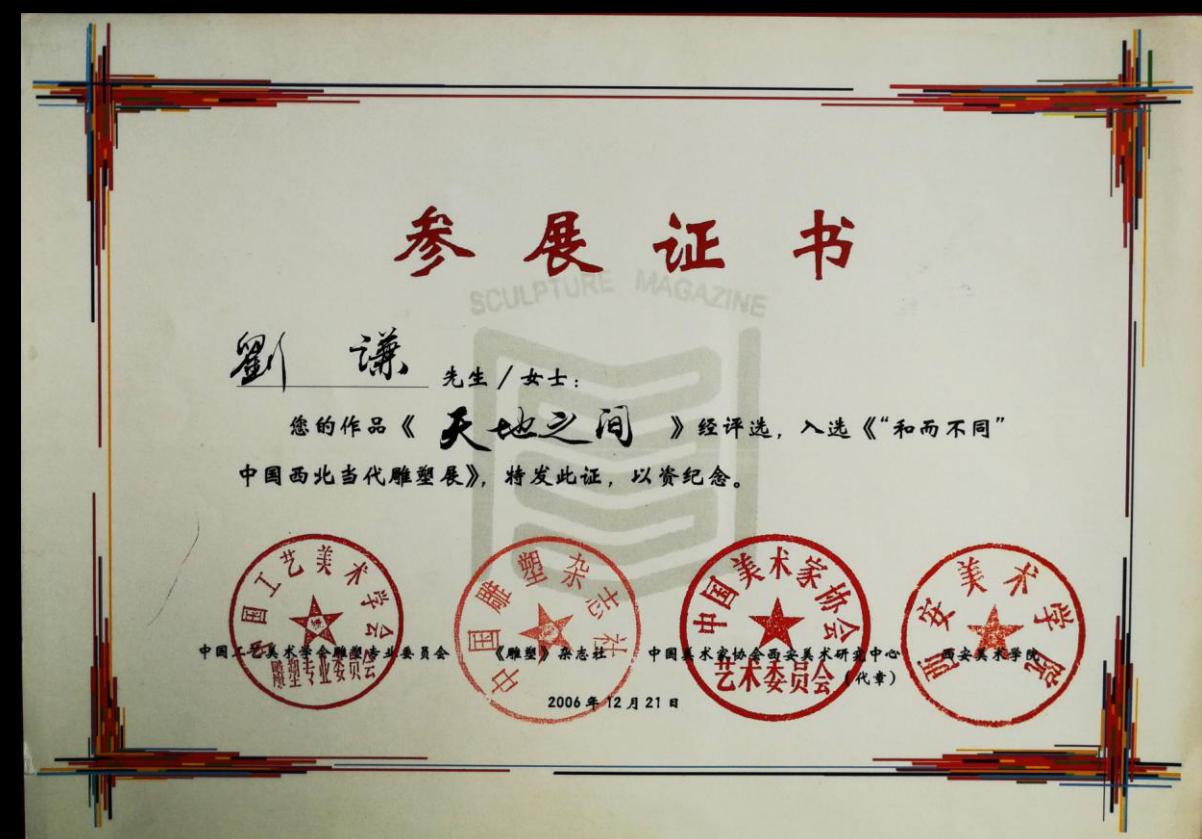 参展证书
SCULPTURE MAGAZINE
劉 谦 先生/女士:
您的作品《天地之间》经评选,入选《“和而不同”
中国西北当代雕塑展》,特发此证,以资纪念。
中国工艺美术学会
雕塑专业委员会
中国雕塑杂志社
中国美术家协会
艺术委员会
西安美术学院
中国工艺美术学会雕塑专业委员会 《雕塑》杂志社 中国美术家协会西安美术研究中心 西安美术学院
(代章)
2006年12月21日